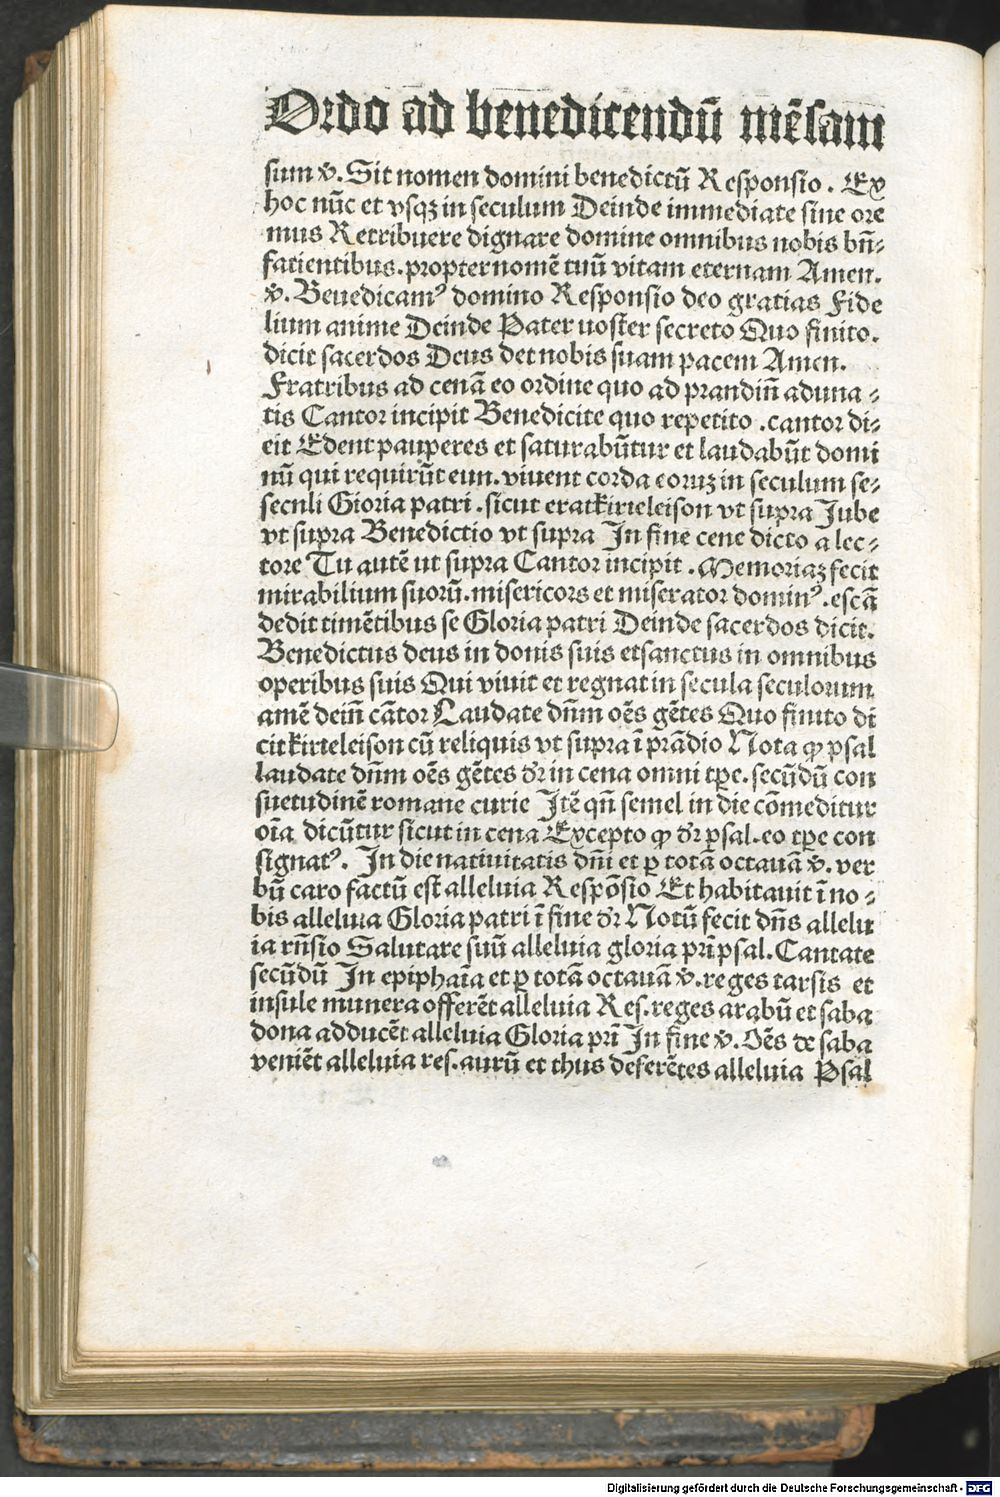 Ordo ad benedicendū mēsam
sum ℣. Sit nomen domini benedictū Responsio. Ex
hoc nūc et vsqꝫ in seculum Deinde immediate sine ore
mus Retribuere dignare domine omnibus nobis bn̄⸗
facientibus. propter nomē tuū vitam eternam Amen.
℣. Benedicamꝰ domino Responsio deo gratias Fide
lium anime Deinde Pater noster secreto Quo finito.
dicit sacerdos Deus det nobis suam pacem Amen.
Fratribus ad cenā eo ordine quo ad prandiū aduna⸗
tis Cantor incipit Benedicite quo repetito .cantor di⸗
cit Edent pauperes et saturabūtur et laudabūt domi
nū qui requirūt eun. viuent corda eoruꝫ in seculum se⸗
seculi Gloria patri .sicut erat kirieleison vt supra Jube
vt supra Benedictio vt supra In fine cene dicto a lec⸗
tore Tu autē ut supra Cantor incipit .Memoriaꝫ fecit
mirabilium suorū. misericors et miserator dominꝰ. escā
dedit timētibus se Gloria patri Deinde sacerdos dicit.
Benedictus deus in donis suis et sanctus in omnibus
operibus suis Qui viuit et regnat in secula seculorum
amē dein̄ cātor Laudate dn̄m oēs gētes Quo finito di
cit kirieleison cū reliquis vt supra ī prādio Nota ꝙ psal
laudate dn̄m oēs gētes d̄r in cena omni tꝑe. secūdū con
suetudinē romane curie Itē qn̄ semel in die cōmeditur
oīa dicūtur sicut in cena Excepto ꝙ d̄r psal. eo tꝑe con
signatꝰ. In die natiuitatis dn̄i et ꝑ totā octauā ℣. ver
bū caro factū est alleluia Respōsio Et habitauit ī no⸗
bis alleluia Gloria patri ī fine d̄r Notū fecit dn̄s allelu
ia rn̄sio Salutare suū alleluia gloria pr̄i psal. Cantate
secūdū In epiphaīa et ꝑ totā octauā ℣. reges tarsis et
insule munera offerēt alleluia Res. reges arabū et saba
dona adducēt alleluia Gloria pr̄i In fine ℣. Oēs de saba
veniēt alleluia res. aurū et thus deferētes alleluia Psal
Digitalisierung gefördert durch die Deutsche Forschungsgemeinschaft - DFG